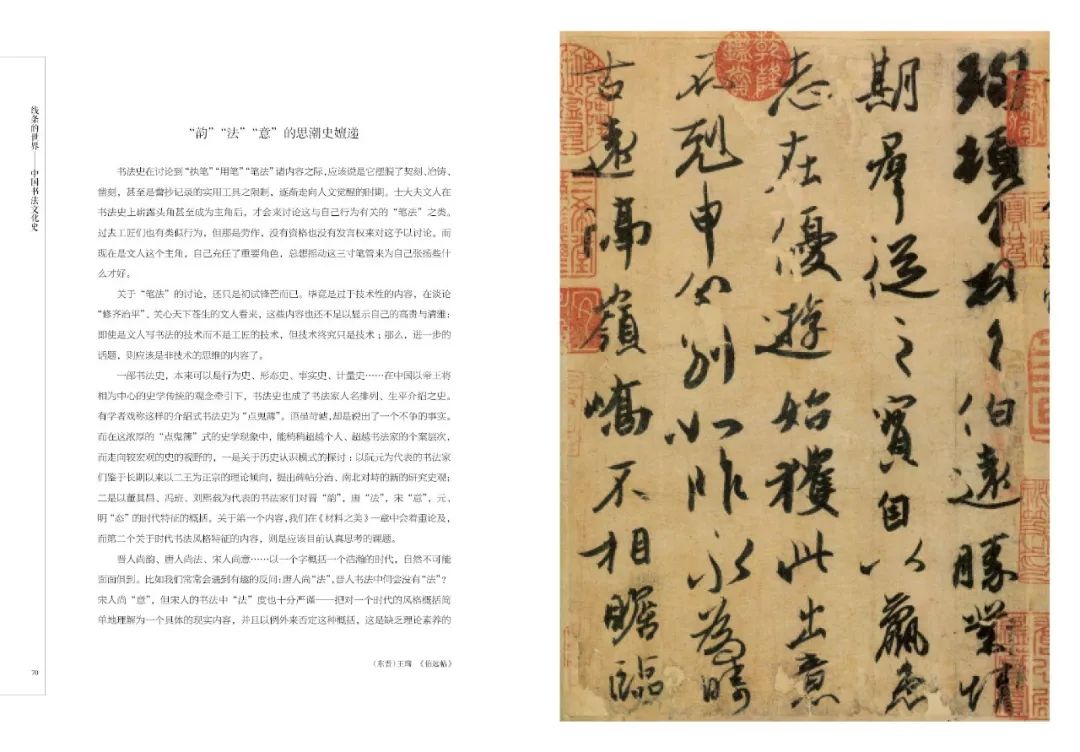 线条的世界——中国书法文化史
70
“韵”“法”“意”的思潮史嬗递
书法史在讨论到“执笔”“用笔”“笔法”诸内容之际，应该说是它摆脱了契刻、冶铸、
凿刻，甚至是誊抄记录的实用工具之限制，逐渐走向人文觉醒的时期。士大夫文人在
书法史上崭露头角甚至成为主角后，才会来讨论这与自己行为有关的“笔法”之类。
过去工匠们也有类似行为，但那是劳作，没有资格也没有发言权来对这予以讨论。而
现在是文人这个主角，自己充任了重要角色，总想摇动这三寸笔管来为自己张扬些什
么才好。
关于“笔法”的讨论，还只是初试锋芒而已。毕竟是过于技术性的内容，在谈论
“修齐治平”、关心天下苍生的文人看来，这些内容也还不足以显示自己的高贵与清雅；
即使是文人写书法的技术而不是工匠的技术，但技术终究只是技术；那么，进一步的
话题，则应该是非技术的思维的内容了。
一部书法史，本来可以是行为史、形态史、事实史、计量史……在中国以帝王将
相为中心的史学传统的观念牵引下，书法史也成了书法家人名排列、生平介绍之史。
有学者戏称这样的介绍式书法史为“点鬼簿”。语虽苛谑，却是说出了一个不争的事实。
而在这浓厚的“点鬼簿”式的史学现象中，能稍稍超越个人、超越书法家的个案层次，
而走向较宏观的史的视野的，一是关于历史认识模式的探讨：以阮元为代表的书法家
们鉴于长期以来以二王为正宗的理论倾向，提出碑帖分治、南北对峙的新的研究史观；
二是以董其昌、冯班、刘熙载为代表的书法家们对晋“韵”，唐“法”，宋“意”，元、
明“态”的时代特征的概括。关于第一个内容，我们在《材料之美》一章中会着重论及，
而第二个关于时代书法风格特征的内容，则是应该目前认真思考的课题。
晋人尚韵、唐人尚法、宋人尚意……以一个字概括一个浩瀚的时代，自然不可能
面面俱到。比如我们常常会遇到有趣的反问：唐人尚“法”，晋人书法中何尝没有“法”？
宋人尚“意”，但宋人的书法中“法”度也十分严谨——把对一个时代的风格概括简
单地理解为一个具体的现实内容，并且以例外来否定这种概括，这是缺乏理论素养的
（东晋）王珣 《伯远帖》
珣顿首顿首伯远胜业情
期群从之宝自以羸患
志在优游始获此出意
不剋申分别如昨永为畴
古远隔岭峤不相瞻临
乾隆鉴赏